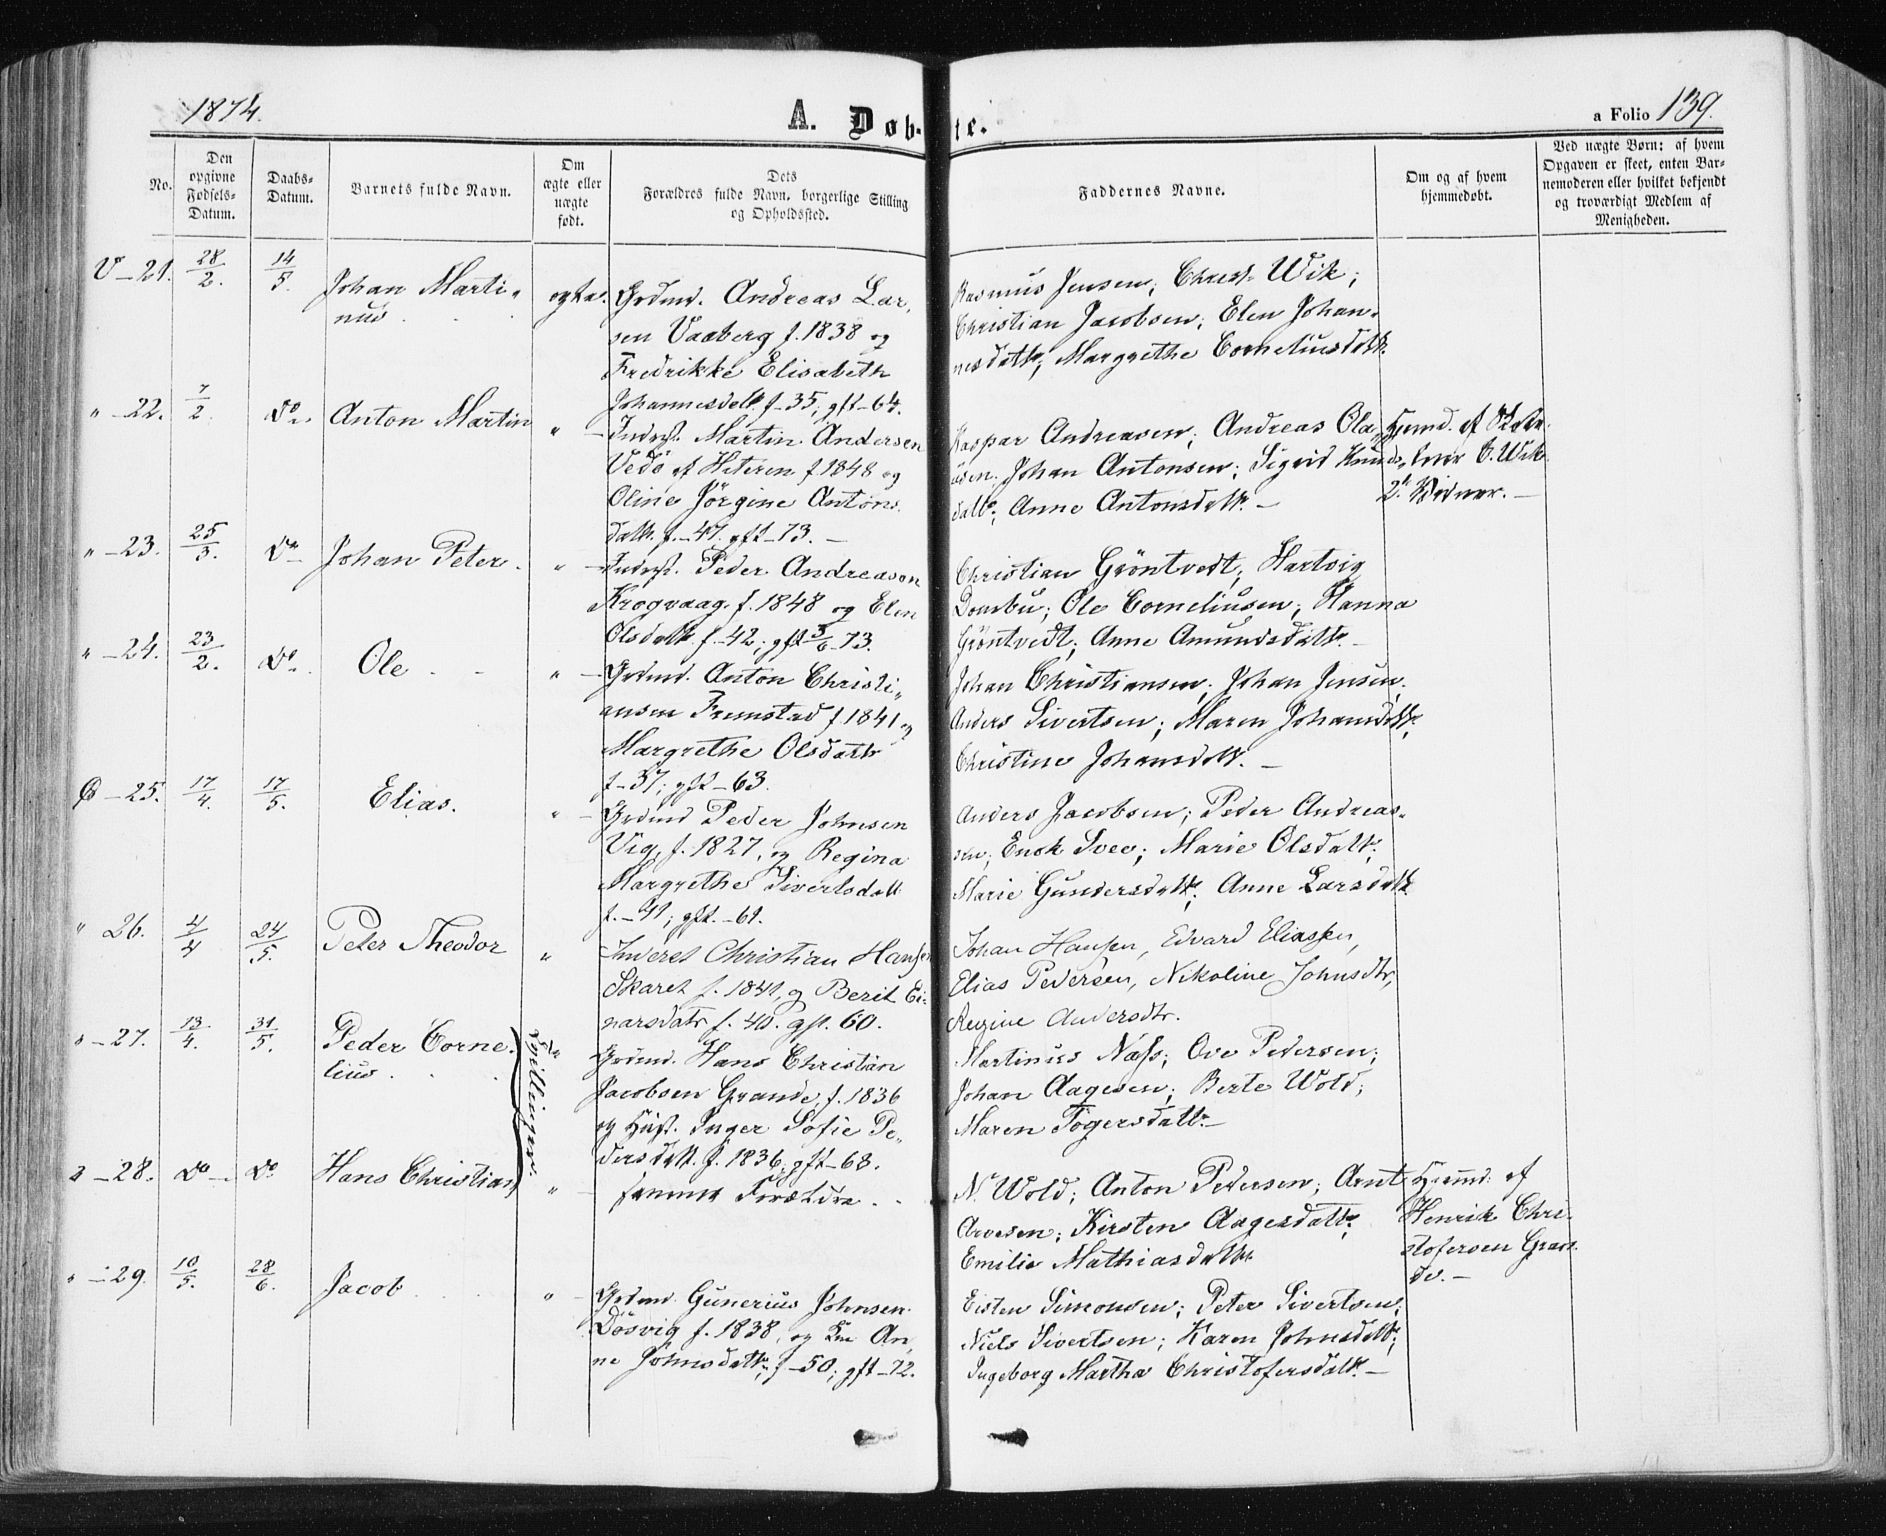 1874.
A. Døb-te.
a Folio 139.
No.
Den opgivne Fødsels-Datum.
Daabs-Datum.
Barnets fulde Navn.
Om ægte eller uægte født.
Dets Forældres fulde Navn, borgerlige Stilling og Opholdssted.
Faddernes Navne.
Om og af hvem hjemmedøbt.
Ved uægte Børn: af hvem Opgaven er skeet, enten Barnemoderen eller hvilket bekjendt og troværdigt Medlem af Menigheden.
V - 21. 28/2. 14/5. Johan Marti-
nus
ægte. Grdmd. Andreas Lar-
sen Vaaberg f. 1838 og
Fredrikke Elisabeth
Johannesdatt. f - 35; gft - 64.
Rasmus Jensen; Christ. Wik;
Christian Jacobsen; Elen Johan-
nesdattr, Margrethe Corneliusdattr.
" - 22. 7/2. Do. Anton Martin
" - Inderst. Martin Andersen
Vedø af Hiteren f 1848 og
Oline Jørgine Antons-
datt. f. - 47. gft - 73. -
Kaspar Andreasen; Andreas Ola-
usen; Johan Antonsen; Sigrid Knuds-
datt; Anne Antonsdattr. -
Hjemd. af
B. Wik
2de Vidner. -
" - 23. 25/3. Do - Johan Peter.
" - Inderst. Peder Andreasen
Krogvaag. f. 1848 og Elen
Olsdattr f. - 42; gft 3/6 - 73.
Christian Gröntvedt; Hartvig
Dombu; Ole Corneliusen; Hanna
Gröntvedt; Anne Amundsdattr. -
" - 24. 23/2. Do. Ole
" - Grdmd. Anton Christi-
ansen Fremstad f. 1841 og
Margrethe Olsdattr
f - 37; gft - 63.
Johan Christiansen; Johan Jensen;
Anders Sivertsen; Maren Johansdattr,
Christine Johansdatt. -
Ø - 25. 17/4. 17/5. Elias.
" - Grdmd Peder Johnsen
Vig, f. 1827, og Regina
Margrethe Sivertsdatt
f. - 41; gft. - 61.
Anders Jacobsen; Peder Andreas-
sen; Enok Svee; Marie Olsdatt;
Marie Gundersdattr; Anne Larsdattr
" 26. 4/4 24/5. Peter Theodor
" Inderst Christian Hansen
Skaret f. 1841, og Berit Ei-
narsdatr f. 40. gft. 60.
Johan Hansen, Edvard Eliassen,
Elias Pedersen, Nikoline Johnsdtr,
Regine Andersdtr.
" - 27. 13/4. 31/5. Peder Corne-
lius
Tvillinger
Grdmd. Hans Christian
Jacobsen Grande, f. 1836
og Hust. Inger Sofie Pe-
dersdatt. f. 1836; gft - 68.
Martinus Næss; Ove Pedersen;
Johan Aagesen; Berte Wold;
Maren Tögersdattr -
" - 28. Do - Do Hans Christian
" - samme Forældre
N. Wold; Anton Pedersen; Arnt
Arvesen; Kirsten Aagesdatt;
Emilie Mathiasdattr
Hjemd. af
Henrik Chri-
stofersen Gran-
de. -
" - 29. 10/5. 28/6. Jacob
" - Grdmd. Gunerius Johnsen
Dösvig f. 1838, og Kne An-
ne Johnsdattr; f - 50; gft - 72.
Eisten Simonsen; Peter Sivertsen;
Niels Sivertsen; Karen Johnsdattr;
Ingeborg Martha Christofersdattr. -